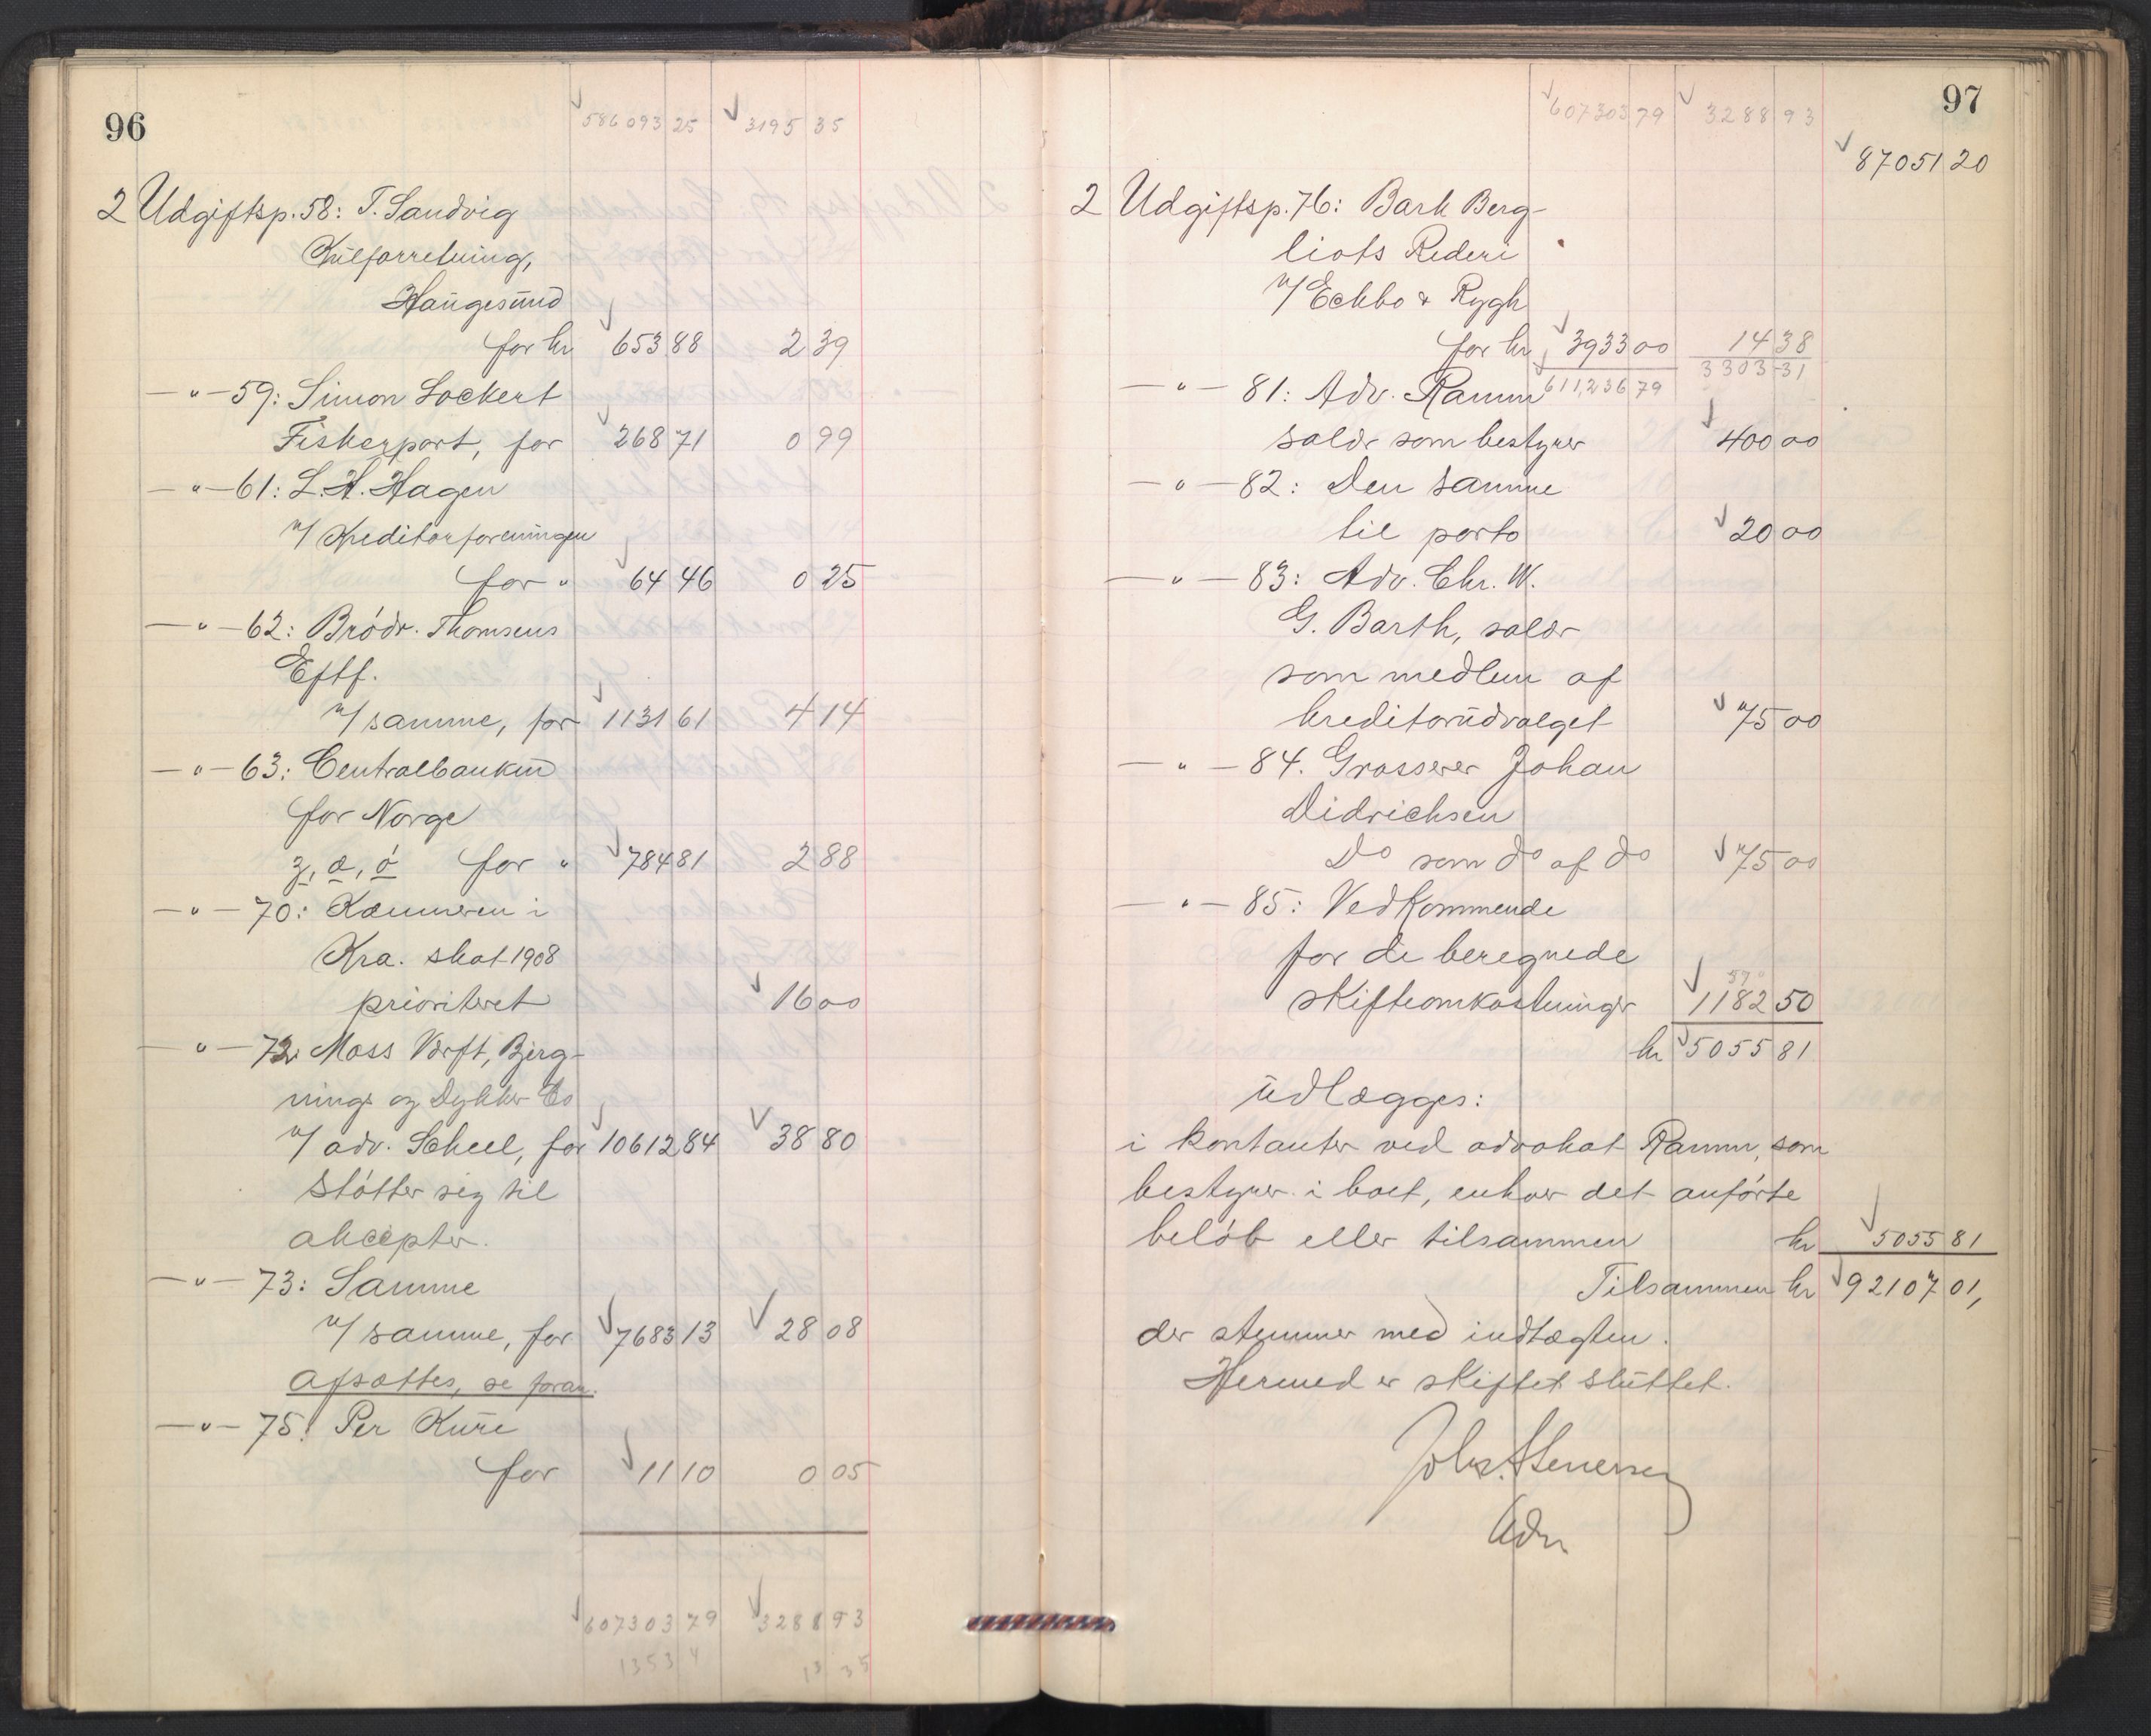 96
586093 25 3195 35
2 Udgiftsp. 58: T. Sandvig
Kulforretning,
Haugesund
for kr 653 88 2 39
— " — 59: Simon Lockert
Fiskerport, for 268 71 0 99
— " — 61: L. H. Hagen
v/ Kreditorforeningen
for " 64 46 0 25
— " — 62: Brödr. Thomsens
Eftf.
v/ samme, for 1131 61 4 14
— " — 63: Centralbanken
for Norge
z, æ, ö for " 784 81 2 88
— " — 70: Kæmneren i
Kra. skat 1908
prioriteret 16 00
— " — 72: Moss Værft, Bjerg-
nings og Dykker Co
v/ adv. Scheel, for 10612 84 38 80
Støtter sig til
akcepter.
— " — 73: Samme
v/ samme, for 7683 13 28 08
afsættes, se foran.
— " — 75: Per Kure
for 11 10 0 05
607303 79 3288 93
1353 4 13 35
97
607303 79 3288 93
87051 20
2 Udgiftsp. 76: Bark Berg-
liots Rederi
v/ Eckbo & Rygh
for kr 3933 00 14 38
611236 79 3303 31
— " — 81: Adv. Ramm
salær som bestyrer 400 00
— " — 82: Den samme
til porto 20 00
— " — 83: Adv. Chr. W.
G. Barth, salær
som medlem af
kreditorudvalget 75 00
— " — 84. Grosserer Johan
Didrichsen
Do som do af do 75 00
— " — 85: Vedkommende
for de beregnede
skifteomkostninger 1182 50
kr 5055 81
udlægges:
i kontanter ved advokat Ramm, som
bestyrer i boet, enhver det anførte
beløb eller tilsammen kr 5055 81
Tilsammen kr 92107 01,
der stemmer med indtægten.
Hermed er skiftet sluttet.